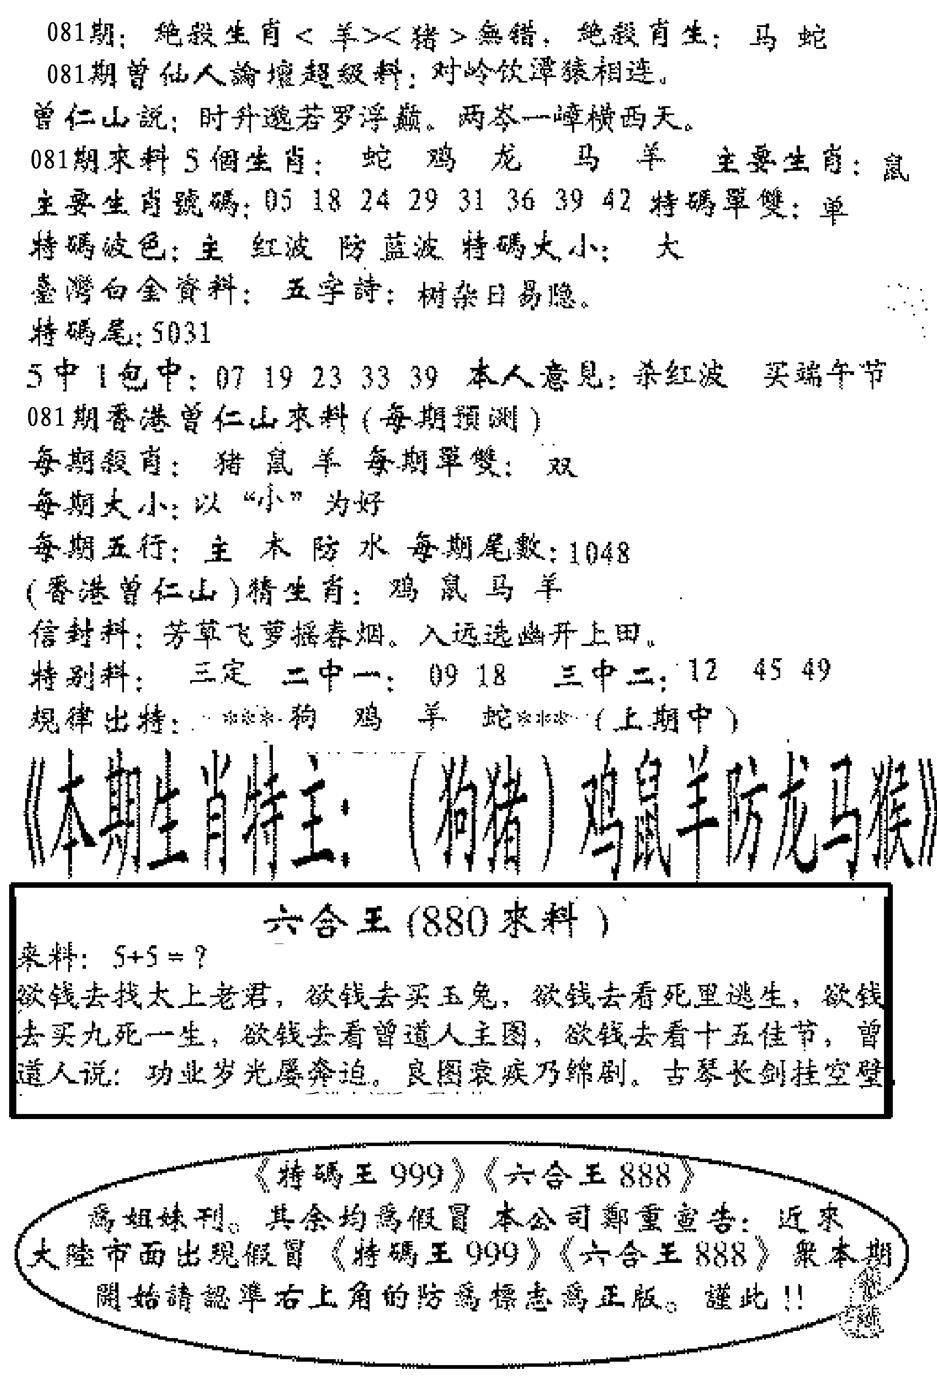 081期：绝殺生肖< 羊><猪 >無错，绝殺肖生：马 蛇
081期曾仙人論壇超級料：对岭饮潭猿相连。
曾仁山説：时升邈若罗浮巅。两岑一嶂横西天。
081期來料 5 個生肖： 蛇 鸡 龙 马 羊 主要生肖：鼠
主要生肖號碼：05 18 24 29 31 36 39 42 特碼單雙：单
特碼波色：主 红波 防 蓝波 特碼大小： 大
臺灣白金資料： 五字詩：树杂日易隐。
特碼尾：5031
5中1包中：07 19 23 33 39 本人意見：杀红波 买端午节
081期香港曾仁山來料(每期預测)
每期殺肖： 猪 鼠 羊 每期單雙： 双
每期大小：以 “小” 为好
每期五行： 主 木 防 水 每期尾數：1048
(香港曾仁山)猜生肖： 鸡 鼠 马 羊
信封料：芳草飞萝摇春烟。入远选幽开上田。
特别料： 三定 二中一： 09 18 三中二：12 45 49
規律出特： ***狗 鸡 羊 蛇***(上期中)
《本期生肖特主：(狗猪)鸡鼠羊防龙马猴》
六合王(880來料)
来料： 5+5=?
欲钱去找太上老君，欲钱去买玉兔，欲钱去看死里逃生，欲钱
去买九死一生，欲钱去看曾道人主图，欲钱去看十五佳节，曾
道人说：功业岁光屡奔迫。良图衰疾乃绵剧。古琴长剑挂空壁.
《特碼王999》《六合王888》
為姐妹刊。其余均為假冒 本公司鄭重宣告：近來
大陸市面出现假冒《特碼王999》《六合王888》衆本期
開始請認準右上角的防為標志為正版。謹此!!